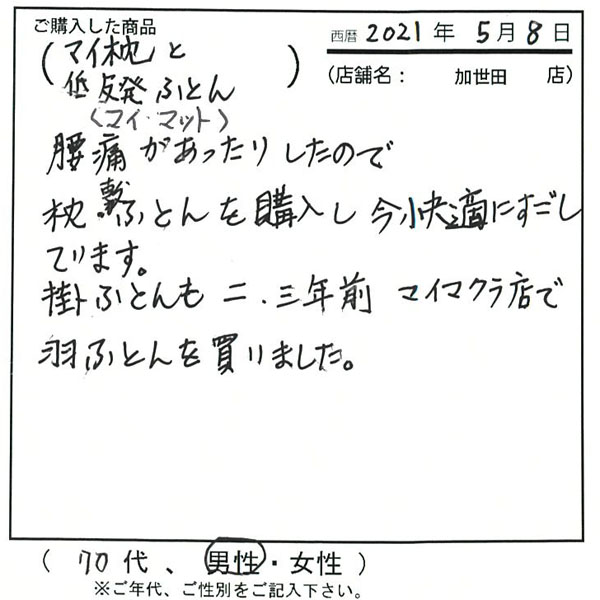 ご購入した商品
西暦 2021年 5月 8日
(マイ枕と
低反発ふとん)
〈マイ・マット〉
(店舗名： 加世田 店)
腰痛があったりしたので
枕・敷ふとんを購入し今快適にすごし
ています。
掛ふとんも二、三年前 マイマクラ店で
羽ふとんを買いました。
( 70代、男性・女性 )
※ご年代、ご性別をご記入下さい。